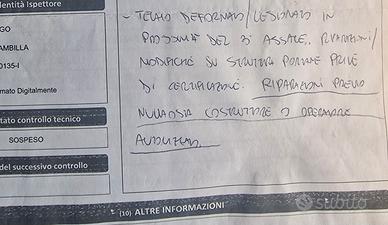 dentità Ispettore
GO
AMBILLA
0135-I
mato Digitalmente
tato controllo tecnico
SOSPESO
del successivo controllo
- TELAIO DEFORMATO / LESIONATO IN
PROSSIMITÀ DEL 3° ASSALE. RIPARAZIONI /
MODIFICHE SU STRUTTURA PORTANTE PRIVE
DI CERTIFICAZIONE. RIPARAZIONI PREVIO
NULLAOSTA COSTRUTTORE O OPERATORE
AUTORIZZATO.
(10) ALTRE INFORMAZIONI
subito